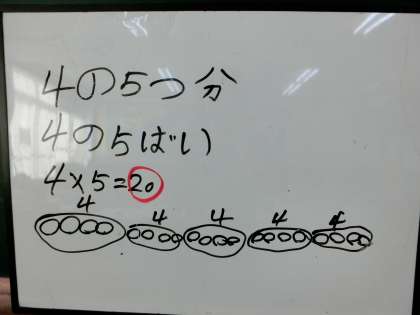 4の5つ分
4の5ばい
4×5=20
4 4 4 4 4